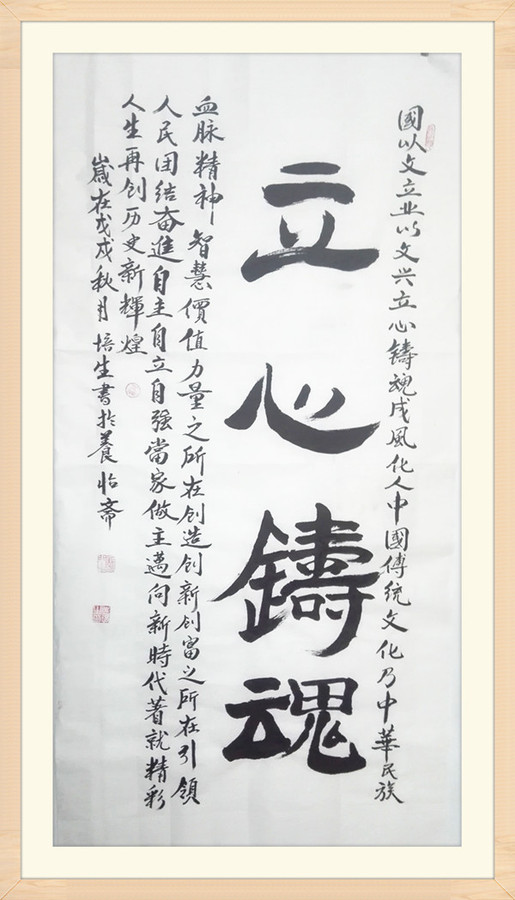 國以文立业以文兴立心鑄魂成風化人中國傳统文化乃中華民族
立心鑄魂
血脉精神智慧價值力量之所在创造创新创富之所在引领
人民团结奋進自主自立自强當家做主邁向新時代著就精彩
人生再创历史新輝煌
歲在戊戌秋月培生書於養怡斋